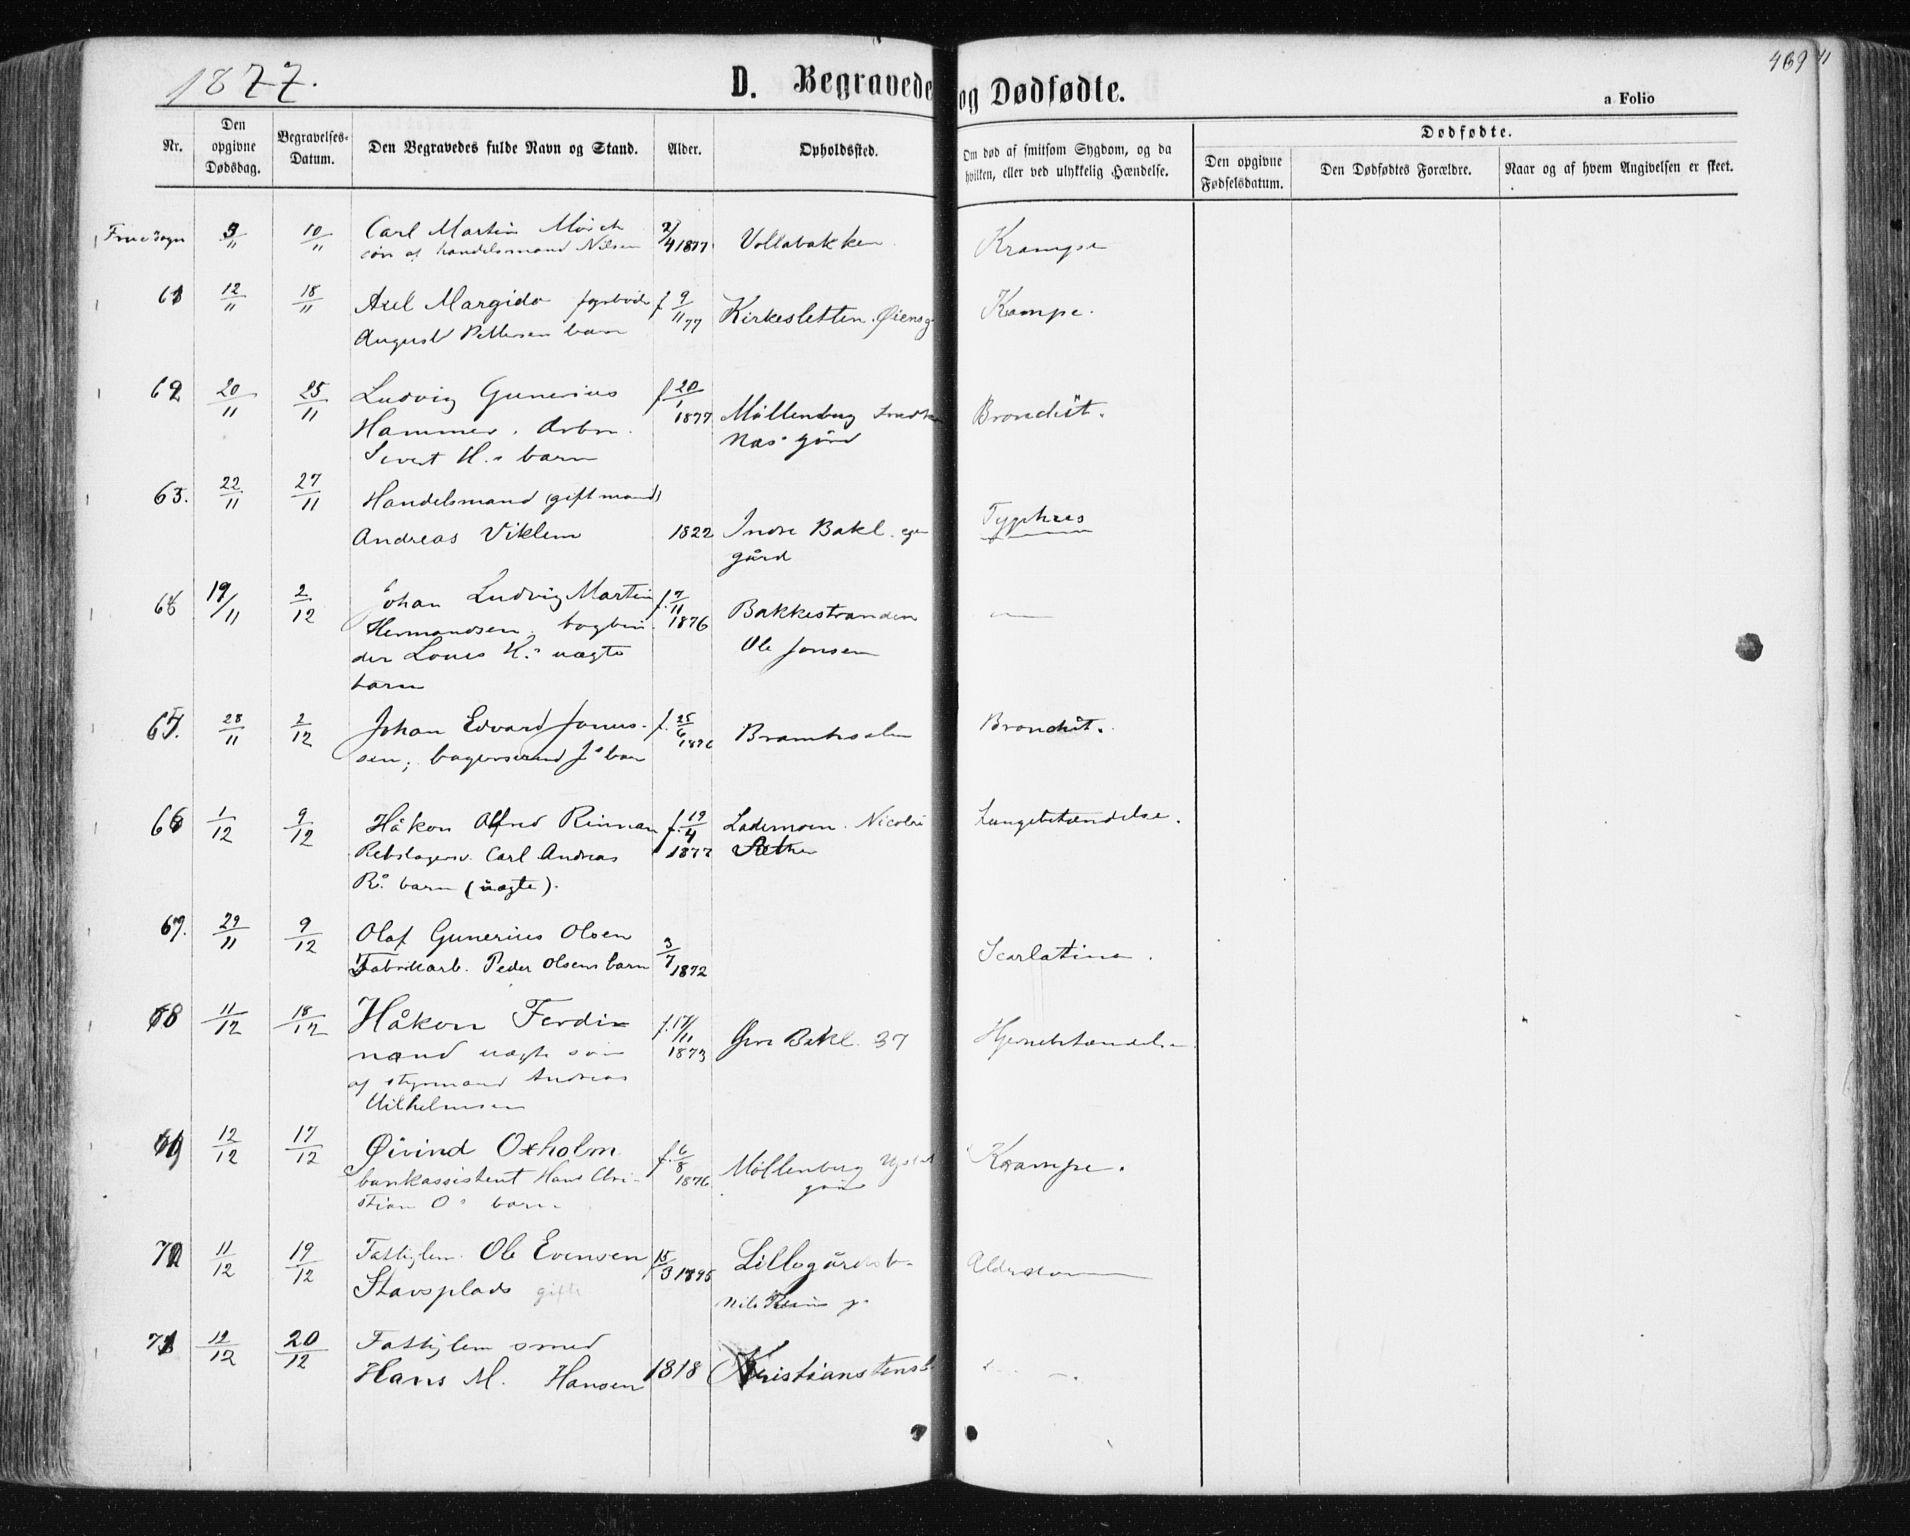 1877.
D. Begravede og Dødfødte.
469
a Folio
Nr.
Den opgivne Dødsdag.
Begravelses-Datum.
Den Begravedes fulde Navn og Stand.
Alder.
Opholdssted.
Om død af smitsom Sygdom, og da hvilken, eller ved ulykkelig Hændelse.
Dødfødte.
Den opgivne Fødselsdatum.
Den Dødfødtes Forældre.
Naar og af hvem Angivelsen er skeet.
Frue sogn 3/11 10/11 Carl Martin Mørch 2/4 1877 Vollabakken Krampe
søn af handelsmand Nilsen
61 12/11 18/11 Axel Margido f 9/11 77 Kirkesletten. Øiens g Kampe.
August Pettersen barn
62 20/11 25/11 Ludvig Gunerius f 20/1 1877 Møllenberg Bronchit.
Hammer. Arbm. Næs' gård
Sivert H.s barn
63. 22/11 27/11 Handelsmand (gift mand)
Andreas Viklem 1822 Indre Bakl. egen Typhus
gård
19/11 2/12 Johan Ludvig Martin f. 7/11 1876 Bakkestranden
Hermandsen, bogbin- Ole Jonsen
der Louis H.s uægte
barn
65. 28/11 2/12 Johan Edvard Jonus- f. 25/6 1876 Bronchit.
sen, bagersvend J.s barn
66 1/12 9/12 Håkon Alfred Rinnan f. 19/4 1877 Lademoen. Nicolai Lungebetændelse.
Rebslagersv. Carl Andreas Sæther
R.s barn (uægte).
67. 29/11 9/12 Olaf Gunerius Olsen 3/7 1872 Scarlatina.
Fabrikarb. Peder Olsens barn
68 11/12 18/12 Håkon Ferdi- f. 17/11 1873 Øvre Bakl. 37 Hjernebetændelse
nand uægte søn
af styrmand Andreas
Vilhelmsen
69 12/12 17/12 Øivind Oxholm f. 6/8 1876 Møllenberg Krampe.
bankassistent Hans Chri- gård
stian O.s barn
70 11/12 19/12 Fattiglem. Ole Evensen 15/3 1795 Lillegårdsb. Alderdom
Stavsplads gift
71 12/12 20/12 Fattiglem smed
Hans M. Hansen 1818 Kristianstensb